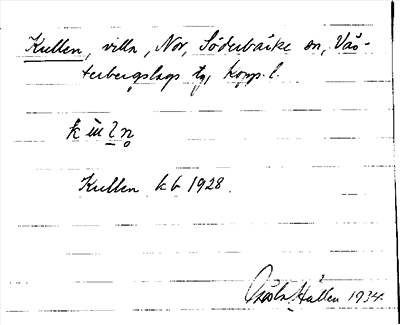 Kullen, villa, Nor, Söderbärke sn, Väs-
terbergslags tg, Kopp. l.
Kullen kb 1928.
Hällen 1934.